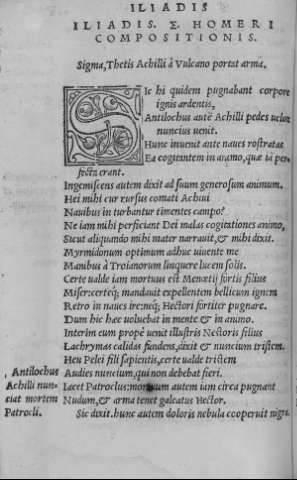 ILIADIS
ILIADIS. Σ. HOMERI
COMPOSITIONIS.
Sigma, Thetis Achilli à Vulcano portat arma.
Sic hi quidem pugnabant corpore
ignis ardentis,
Antilochus autē Achilli pedes uelox
nuncius uenit.
Hunc inuenit ante naues rostratas
Ea cogitantem in animo, quæ iā per
fecta erant.
Ingemiscens autem dixit ad suum generosum animum.
Hei mihi cur rursus comati Achiui
Nauibus in turbantur timentes campo?
Ne iam mihi perficiant Dei malas cogitationes animo,
Sicut aliquando mihi mater narrauit, & mihi dixit.
Myrmidonum optimum adhuc uiuente me
Manibus à Troianorum linquere lucem solis.
Certe ualde iam mortuus est Menœtij fortis filius
Miser certeq; mandaui expellentem bellicum ignem
Retro in naues ire: neq; Hectori fortiter pugnare.
Dum hic hæc uoluebat in mente & in animo.
Interim eum propè uenit illustris Nestoris filius
Lachrymas calidas fundens, dixit & nuncium tristem.
Heu Pelei fili sapientis, certe ualde tristem
Antilochus Audies nuncium, qui non debebat fieri.
Achilli nun- Iacet Patroclus: mortuum autem iam circa pugnant
ciat mortem Nudum, & arma tenet galeatus Hector.
Patrocli. Sic dixit. hunc autem doloris nebula cooperuit nigra